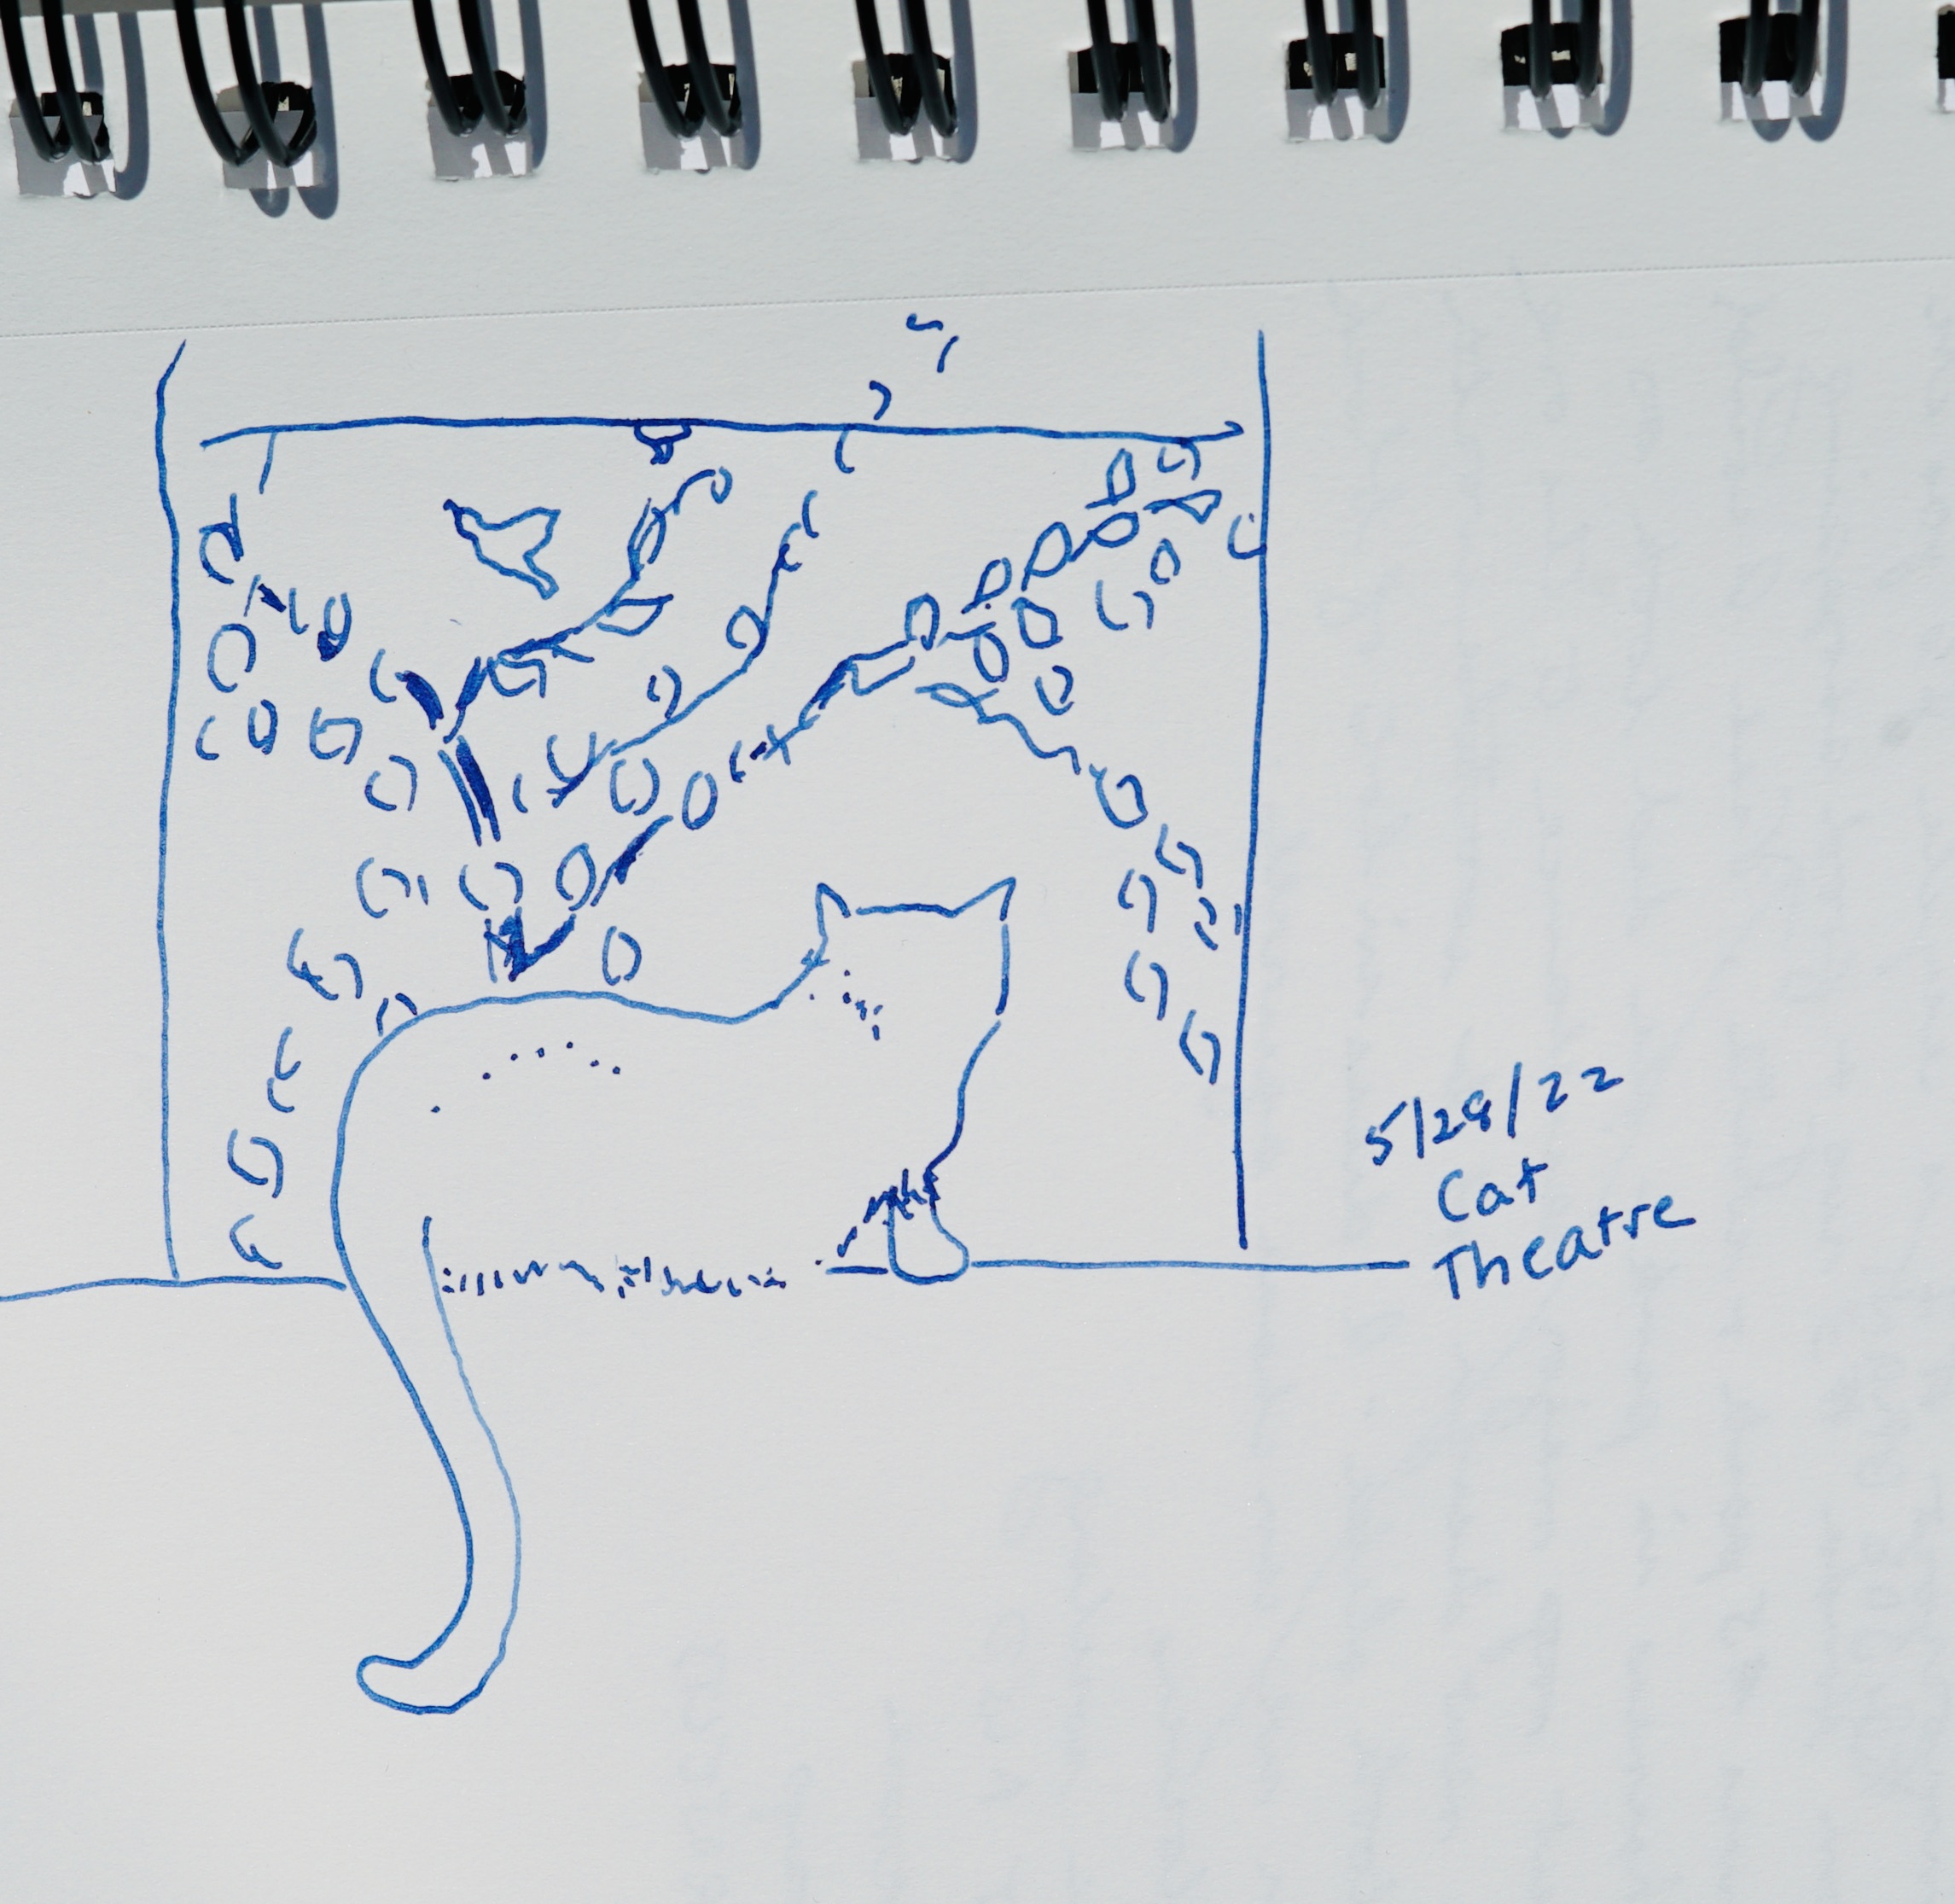 5/28/22
Cat
Theatre